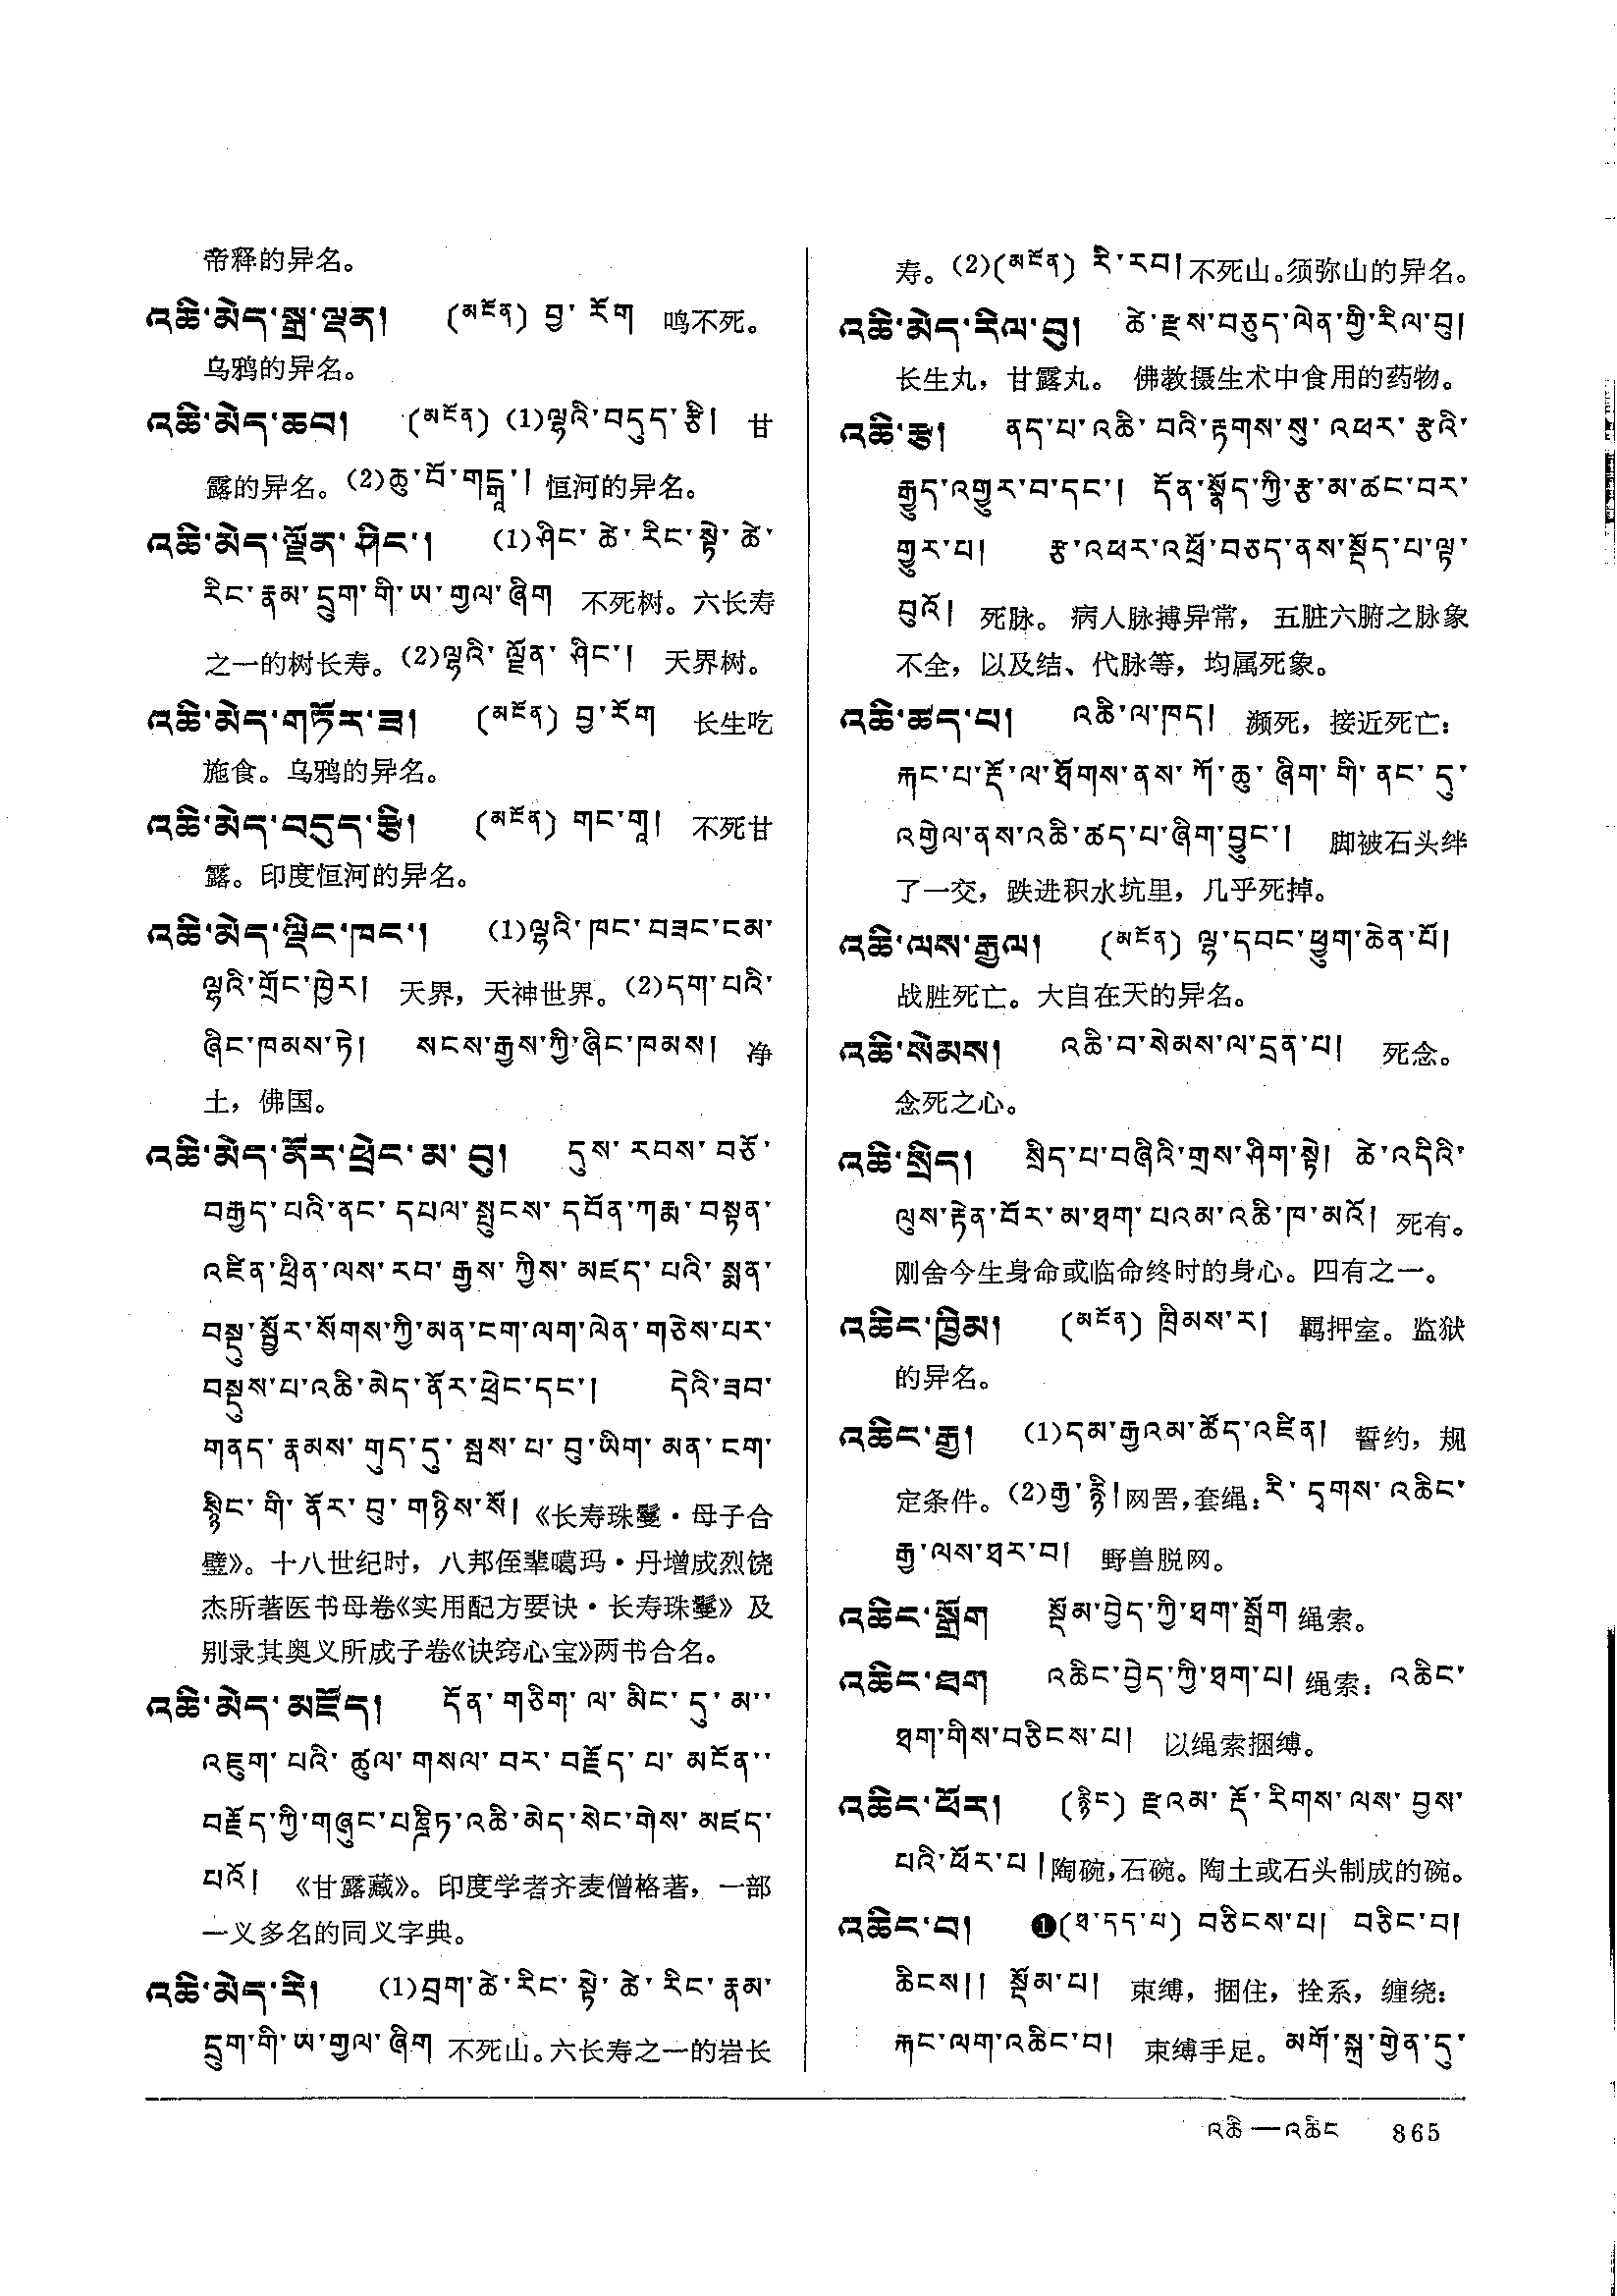 帝释的异名。
འཆི་མེད་སྒྲ་ལྡན། (མངོན) བྱ་ རོག 鸣不死。
乌鸦的异名。
འཆི་མེད་ཆབ། (མངོན) (1)ལྷའི་བདུད་རྩི། 甘
露的异名。(2)ཆུ་བོ་གངྒཱ་། 恒河的异名。
འཆི་མེད་ལྗོན་ཤིང་། (1)ཤིང་ ཚེ་ རིང་ སྟེ་ ཚེ་
རིང་རྣམ་དྲུག་གི་ཨ་གྱལ་ཞིག 不死树。六长寿
之一的树长寿。(2)ལྷའི་ ལྗོན་ ཤིང་། 天界树。
འཆི་མེད་གཏོར་ཟ། (མངོན) བྱ་རོག 长生吃
施食。乌鸦的异名。
འཆི་མེད་བདུད་རྩི། (མངོན) གང་གཱ། 不死甘
露。印度恒河的异名。
འཆི་མེད་ལྡིང་ཁང་། (1)ལྷའི་ཁང་བཟང་ངམ་
ལྷའི་གྲོང་ཁྱེར། 天界，天神世界。(2)དག་པའི་
ཞིང་ཁམས་ཏེ། སངས་རྒྱས་ཀྱི་ཞིང་ཁམས། 净
土，佛国。
འཆི་མེད་ནོར་ཕྲེང་མ་བུ། དུས་ རབས་ བཅོ་
བརྒྱད་པའི་ནང་ དཔལ་སྤུངས་ དབོན་ཀརྨ་ བསྟན་
འཛིན་ཕྲིན་ལས་ རབ་ རྒྱས་ ཀྱིས་ མཛད་ པའི་ སྨན་
བསྡུ་སྦྱོར་སོགས་ཀྱི་མན་ངག་ལག་ལེན་གཅེས་པར་
བསྡུས་པ་འཆི་མེད་ནོར་ཕྲེང་དང་། དེའི་ཟབ་
གནད་ རྣམས་ གུད་དུ་ སྦས་ པ་ བུ་ཡིག་ མན་ ངག་
སྙིང་ གི་ ནོར་ བུ་ གཉིས་སོ། 《长寿珠鬘·母子合
璧》。十八世纪时，八邦侄辈噶玛·丹增成烈饶
杰所著医书母卷《实用配方要诀·长寿珠鬘》及
别录其奥义所成子卷《诀窍心宝》两书合名。
འཆི་མེད་མཛོད། དོན་ གཅིག་ ལ་ མིང་ དུ་ མ་་
འཇུག་ པའི་ ཚུལ་ གསལ་ བར་ བརྗོད་ པ་ མངོན་་
བརྗོད་ཀྱི་གཞུང་པཎྜིཏ་འཆི་མེད་སེང་གེས་ མཛད་
པའོ། 《甘露藏》。印度学者齐麦僧格著，一部
一义多名的同义字典。
འཆི་མེད་རི། (1)བྲག་ཚེ་རིང་ སྟེ་ ཚེ་ རིང་ རྣམ་
དྲུག་གི་ཨ་གྱལ་ ཞིག 不死山。六长寿之一的岩长
寿。(2)(མངོན) རི་རབ། 不死山。须弥山的异名。
འཆི་མེད་རིལ་བུ། ཚེ་རྫས་བཅུད་ལེན་གྱི་རིལ་བུ།
长生丸，甘露丸。 佛教摄生术中食用的药物。
འཆི་རྩ། ནད་པ་འཆི་ བའི་རྟགས་སུ་ འཕར་ རྩའི་
རྒྱུད་འགྱུར་བ་དང་། དོན་སྣོད་ཀྱི་རྩ་མ་ཚང་བར་
གྱུར་པ། རྩ་འཕར་འཕྲོ་བཅད་ནས་སྡོད་པ་ལྟ་
བུའོ། 死脉。 病人脉搏异常，五脏六腑之脉象
不全，以及结、代脉等，均属死象。
འཆི་ཚད་པ། འཆི་ལ་ཁད། 濒死，接近死亡：
རྐང་པ་རྡོ་ལ་ཐོགས་ནས་ ཀོ་ཆུ་ ཞིག་ གི་ ནང་ དུ་
འགྱེལ་ནས་འཆི་ཚད་པ་ཞིག་བྱུང་། 脚被石头绊
了一交，跌进积水坑里，几乎死掉。
འཆི་ལས་རྒྱལ། (མངོན) ལྷ་དབང་ཕྱུག་ཆེན་པོ།
战胜死亡。大自在天的异名。
འཆི་སེམས། འཆི་བ་སེམས་ལ་དྲན་པ། 死念。
念死之心。
འཆི་སྲིད། སྲིད་པ་བཞིའི་གྲས་ཤིག་སྟེ། ཚེ་འདིའི་
ལུས་རྟེན་བོར་མ་ཐག་ པའམ་འཆི་ཁ་མའོ། 死有。
刚舍今生身命或临命终时的身心。四有之一。
འཆིང་ཁྲིམ། (མངོན) ཁྲིམས་ར། 羁押室。监狱
的异名。
འཆིང་རྒྱ། (1)དམ་རྒྱའམ་ཚོད་འཛིན། 誓约，规
定条件。(2)རྒྱ་ རྙི། 网罟，套绳：རི་ དྭགས་ འཆིང་
རྒྱ་ལས་ཐར་བ། 野兽脱网。
འཆིང་སྒྲོག སྡོམ་བྱེད་ཀྱི་ཐག་སྒྲོག 绳索。
འཆིང་ཐག འཆིང་བྱེད་ཀྱི་ཐག་པ། 绳索：འཆིང་
ཐག་གིས་བཅིངས་པ། 以绳索捆缚。
འཆིང་ཕོར། (རྙིང) རྫའམ་ རྡོ་རིགས་ལས་ བྱས་
པའི་ཕོར་པ། 陶碗，石碗。陶土或石头制成的碗。
འཆིང་བ། ❶(ཐ་དད་པ) བཅིངས་པ། བཅིང་བ།
ཆིངས།། སྡོམ་པ། 束缚，捆住，拴系，缠绕：
རྐང་ལག་འཆིང་བ། 束缚手足。མགོ་སྐྲ་གྱེན་དུ་
འཆི — འཆིང 865